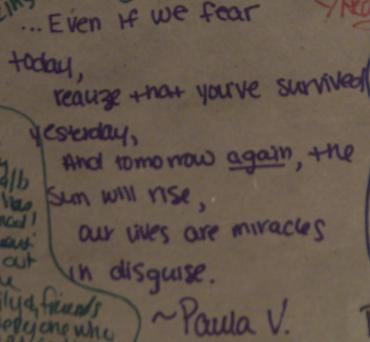 ...Even if we fear
today,
realize that youve survived
yesterday,
And tomorrow again, the
sun will rise,
our lives are miracles
in disguise.
~Paula V.
a/b
out
friends
everyone who